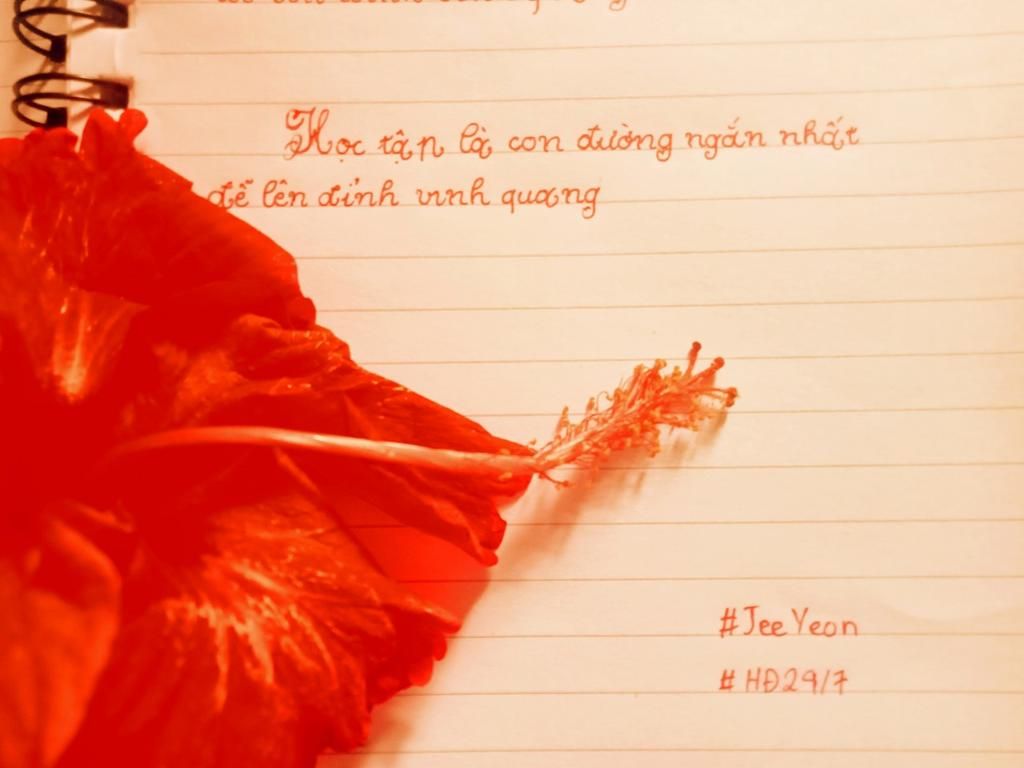 Học tập là con đường ngắn nhất
để lên đỉnh vinh quang
#JeeYeon
#HĐ29/7